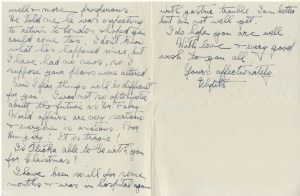 well & more prosperous.
He told me he was expecting
to return to London & hoped you
could come too. I don't know
what has happened since but
I have had no news, so I
suppose your plans were altered
and I fear things will be difficult
for you. I was not so optimistic
about the future as he.
World affairs are very serious
& everyone so anxious. Poor
Hungary! It is tragic!
Is able to be with you
for Christmas?
I have been so ill for some
months & was in hospital again
with gastric trouble. I am better
but am not well yet.
I do hope you are well
With love & every good
wish to you all
Yours affectionately